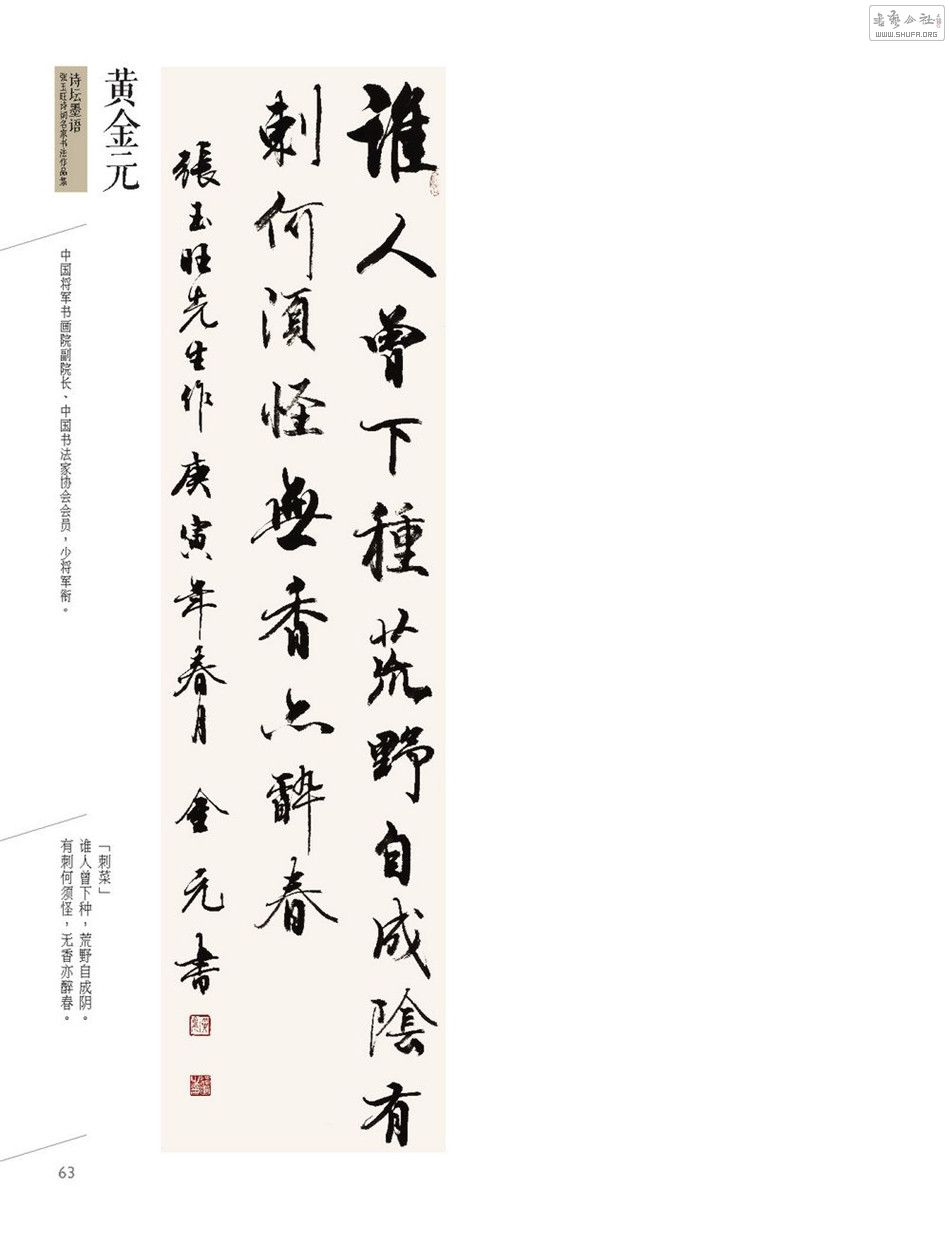 書藝公社
WWW.SHUFA.ORG
黄金元
诗坛墨语
张玉旺诗词名家书法作品集
中国将军书画院副院长、中国书法家协会会员，少将军衔。
誰人曾下種荒野自成陰有
刺何須怪無香亦醉春
張玉旺先生作 庚寅年春月 金元書
「刺菜」
谁人曾下种，荒野自成阴。
有刺何须怪，无香亦醉春。
63